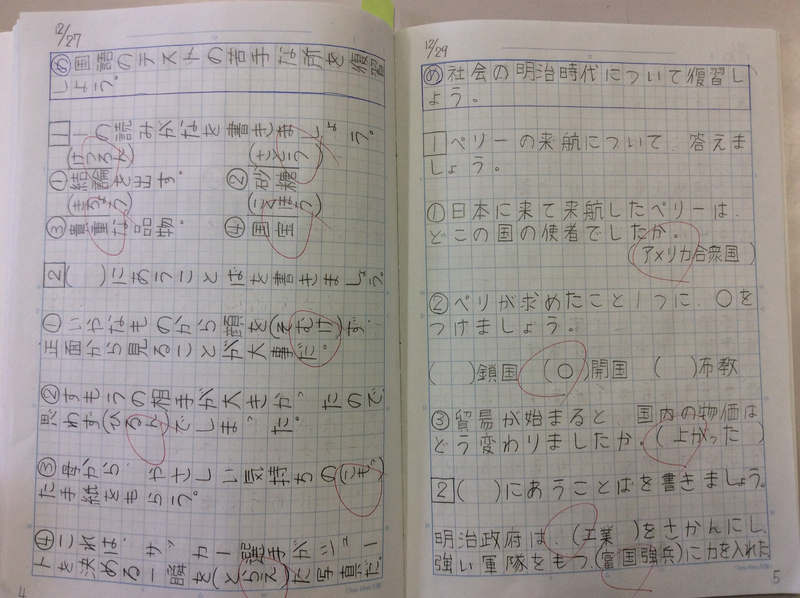 12/27
め 国語のテストの苦手な所を復習
しよう。
1 ーの読みがなを書きましょう。
(けつろん) (さとう)
①結論を出す。 ②砂糖
(きちょう) (こくほう)
③貴重な品物。 ④国宝
2 ( )にあうことばを書きましょう。
①いやなものから顔を(そむけ)ず、
正面から見ることが大事だ。
②すもうの相手が大きかったので、
思わず(ひるん)でしまった。
③母から、やさしい気持ちの(こもっ)
た手紙をもらう。
④これは、サッカー選手がシュー
トを決める一瞬を(とらえ)た写真だ。
4
12/29
め 社会の明治時代について復習し
よう。
1 ペリーの来航について、答えま
しょう。
①日本に来て来航したペリーは、
どこの国の使者でしたか。
(アメリカ合衆国)
②ペリが求めたこと1つに、○を
つけましょう。
( )鎖国 (○)開国 ( )布教
③貿易が始まると、国内の物価は
どう変わりましたか。(上がった)
2 ( )にあうことばを書きましょう。
明治政府は、(工業)をさかんにし、
強い軍隊をもつ、(富国強兵)に力を入れた
5